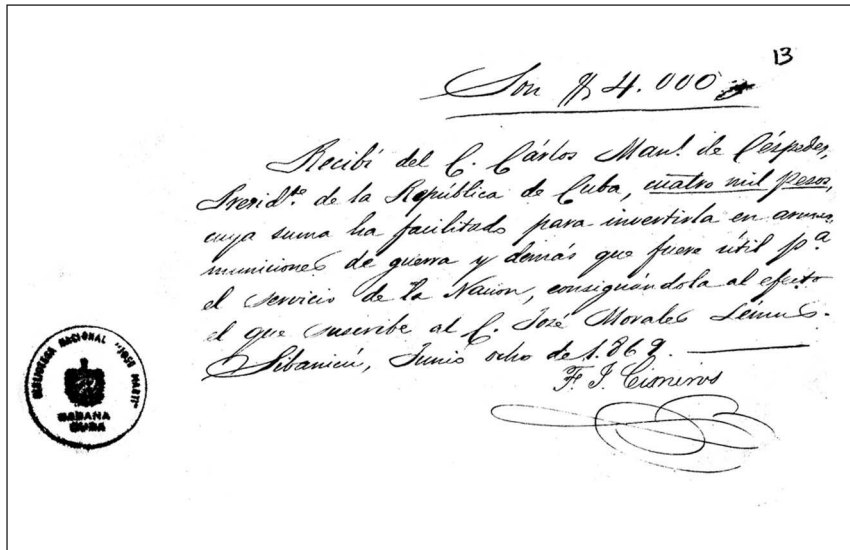 13
Son $ 4.000
Recibí del C. Cárlos Manl. de Céspedes,
Presidte. de la República de Cuba, cuatro mil pesos,
cuya suma ha facilitado para invertirla en armas,
municiones de guerra y demás que fuere útil pa
el servicio de la Nacion, consignándola al efecto
el que suscribe al C. José Morales Lémus.
Sibanicú, Junio ocho de 1.869.
F. J. Cisneros
BIBLIOTECA NACIONAL "JOSE MARTI"
HABANA
CUBA